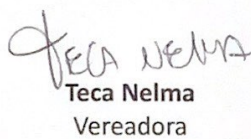 Teca Nelma
Teca Nelma
Vereadora